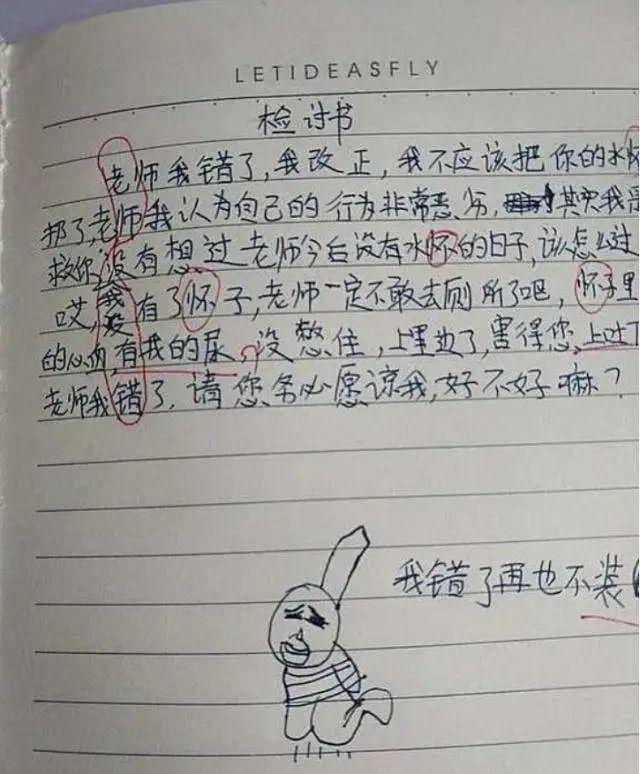 LETIDEASFLY
检讨书
老师我错了,我改正,我不应该把你的水怀
扔了,老师我认为自己的行为非常恶劣,其实我是
救你,没有想过老师今后没有水怀的日子,该怎么过
哎,我没有了怀子,老师一定不敢去厕所了吧,怀子里
的心血,有我的尿,没憋住,上里边了,害得您上吐
老师我错了,请您务必愿谅我,好不好嘛?
我错了再也不装